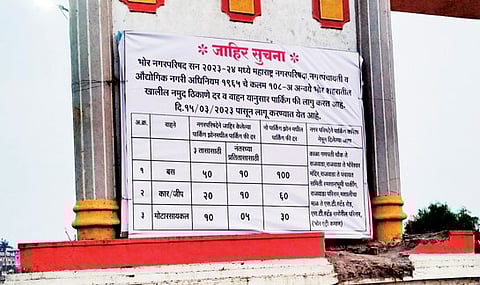 * जाहिर सुचना *
भोर नगरपरिषद सन २०२३-२४ मध्ये महाराष्ट्र नगरपरिषदा,नगरपंचायती व
औद्योगिक नगरी अधिनियम १९६५ चे कलम १०८-अ अन्वये भोर शहरातील
खालील नमुद ठिकाणे दर व वाहन यानुसार पार्किंग फी लागु करत आहे.
दि.१५/०३/२०२३ पासून लागू करण्यात येत आहे.
अ.क्र. वाहने नगरपरिषदेने जाहिर केलेल्या पार्किंग झोनमधील पार्किंग फी दर नो पार्किंग झोनमधील पार्किंग फी दर नगर परिषदेने पार्किंग करिता नेमून दिलेल्या जागा
३ तासासाठी नंतरच्या प्रतितासासाठी
१ बस ५० १० १००
२ कार/जीप २० १० ६०
३ मोटारसायकल १० ०५ ३०
राजवाडा, राजवाडा ते भोरेश्वर
मंदिर,राजवाडा ते पंचायत
राजवाडा परिसर,